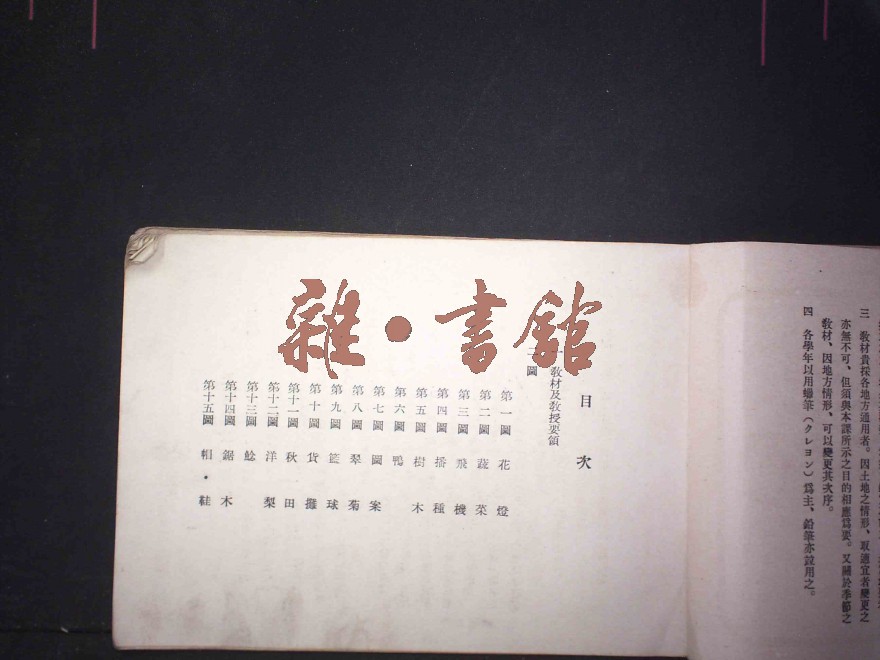 三 教材貴採各地方通用者。因土地之情形、取適宜者變更之
亦無不可、但須與本課所示之目的相應爲要。又關於季節之
教材、因地方情形、可以變更其次序。
四 各學年以用蠟筆(クレヨン)爲主、鉛筆亦說用之。
目次
一 教材及教授要領
二 圖
第一圖 花燈
第二圖 蔬菜
第三圖 飛機
第四圖 播種
第五圖 樹木
第六圖 鴨
第七圖 圖案
第八圖 翠菊
第九圖 籃球
第十圖 貨攤
第十一圖 秋田
第十二圖 洋梨
第十三圖 鯰
第十四圖 鋸木
第十五圖 帽・鞋
雜・書館